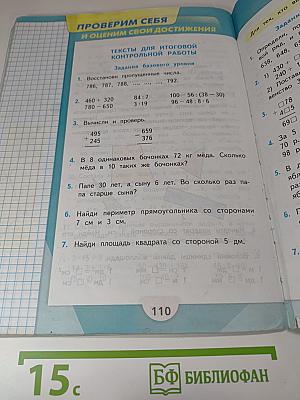 ПРОВЕРИМ СЕБЯ
И ОЦЕНИМ СВОИ ДОСТИЖЕНИЯ
ТЕКСТЫ ДЛЯ ИТОГОВОЙ
КОНТРОЛЬНОЙ РАБОТЫ
Задания базового уровня
1. Восстанови пропущенные числа.
786, 787, 788, ..., ..., ..., 792.
2. 460 + 320 84 : 7 100 − 56 : (38 − 30)
780 − 630 3 · 19 96 − 48 : 8 · 6
3. Вычисли и проверь.
495 659
+ 245 − 376
4. В 8 одинаковых бочонках 72 кг мёда. Сколько
мёда в 10 таких же бочонках?
5. Папе 30 лет, а сыну 6 лет. Во сколько раз па-
па старше сына?
6. Найди периметр прямоугольника со сторонами
7 см и 3 см.
7. Найди площадь квадрата со стороной 5 дм.
110
Для тех, кто
1. Определи,
15 с
БФ БИБЛИОФАН